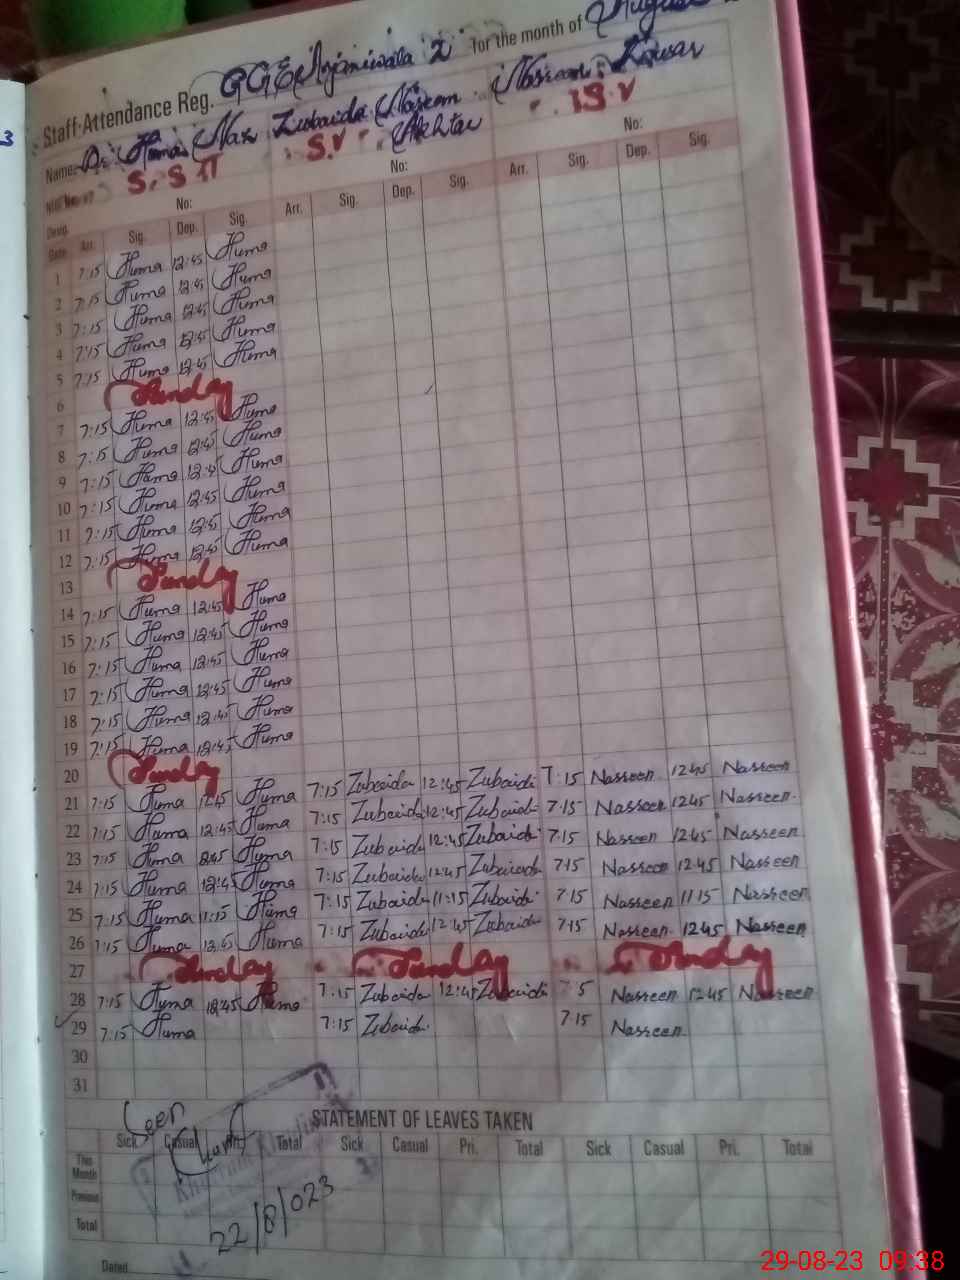 Staff Attendance Reg. for the month of August
Name: Dr. Huma Naz Zubaida Naseem Akhtar Nasreen Kowsar
S.S.T S.V
No: No: No:
Desig.
Date Arr. Sig. Dep. Sig. Arr. Sig. Dep. Sig. Arr. Sig. Dep. Sig.
1 7:15 Huma 12:45 Huma
2 7:15 Huma 12:45 Huma
3 7:15 Huma 12:45 Huma
4 7:15 Huma 12:45 Huma
5 7:15 Huma 12:45 Huma
6 Sunday
7 7:15 Huma 12:45 Huma
8 7:15 Huma 12:45 Huma
9 7:15 Huma 12:45 Huma
10 7:15 Huma 12:45 Huma
11 7:15 Huma 12:45 Huma
12 7:15 Huma 12:45 Huma
13 Sunday
14 7:15 Huma 12:45 Huma
15 7:15 Huma 12:45 Huma
16 7:15 Huma 12:45 Huma
17 7:15 Huma 12:45 Huma
18 7:15 Huma 12:45 Huma
19 7:15 Huma 12:45 Huma
20 Sunday
21 7:15 Huma 12:45 Huma 7:15 Zubaida 12:45 Zubaida 7:15 Nasreen 1245 Nasreen
22 7:15 Huma 12:45 Huma 7:15 Zubaida 12:45 Zubaida 7:15 Nasreen 1245 Nasreen.
23 7:15 Huma 12:45 Huma 7:15 Zubaida 12:45 Zubaida 7:15 Nasreen 12:45 Nasreen
24 7:15 Huma 12:45 Huma 7:15 Zubaida 12:45 Zubaida 7:15 Nasreen 12:45 Nasreen
25 7:15 Huma 11:15 Huma 7:15 Zubaida 11:15 Zubaida 7:15 Nasreen 11:15 Nasreen
26 7:15 Huma 12:45 Huma 7:15 Zubaida 12:45 Zubaida 7:15 Nasreen 1245 Nasreen
27 Sunday Sunday Sunday
28 7:15 Huma 12:45 Huma 7:15 Zubaida 12:45 Zubaida 7 5 Nasreen 1245 Nasreen
29 7:15 Huma 7:15 Zubaida 7:15 Nasreen
30
31
Seen
STATEMENT OF LEAVES TAKEN
Sick Casual Pri. Total Sick Casual Pri. Total Sick Casual Pri. Total
This Month
Previous
Total
22/8/023
Dated
29-08-23 09:38